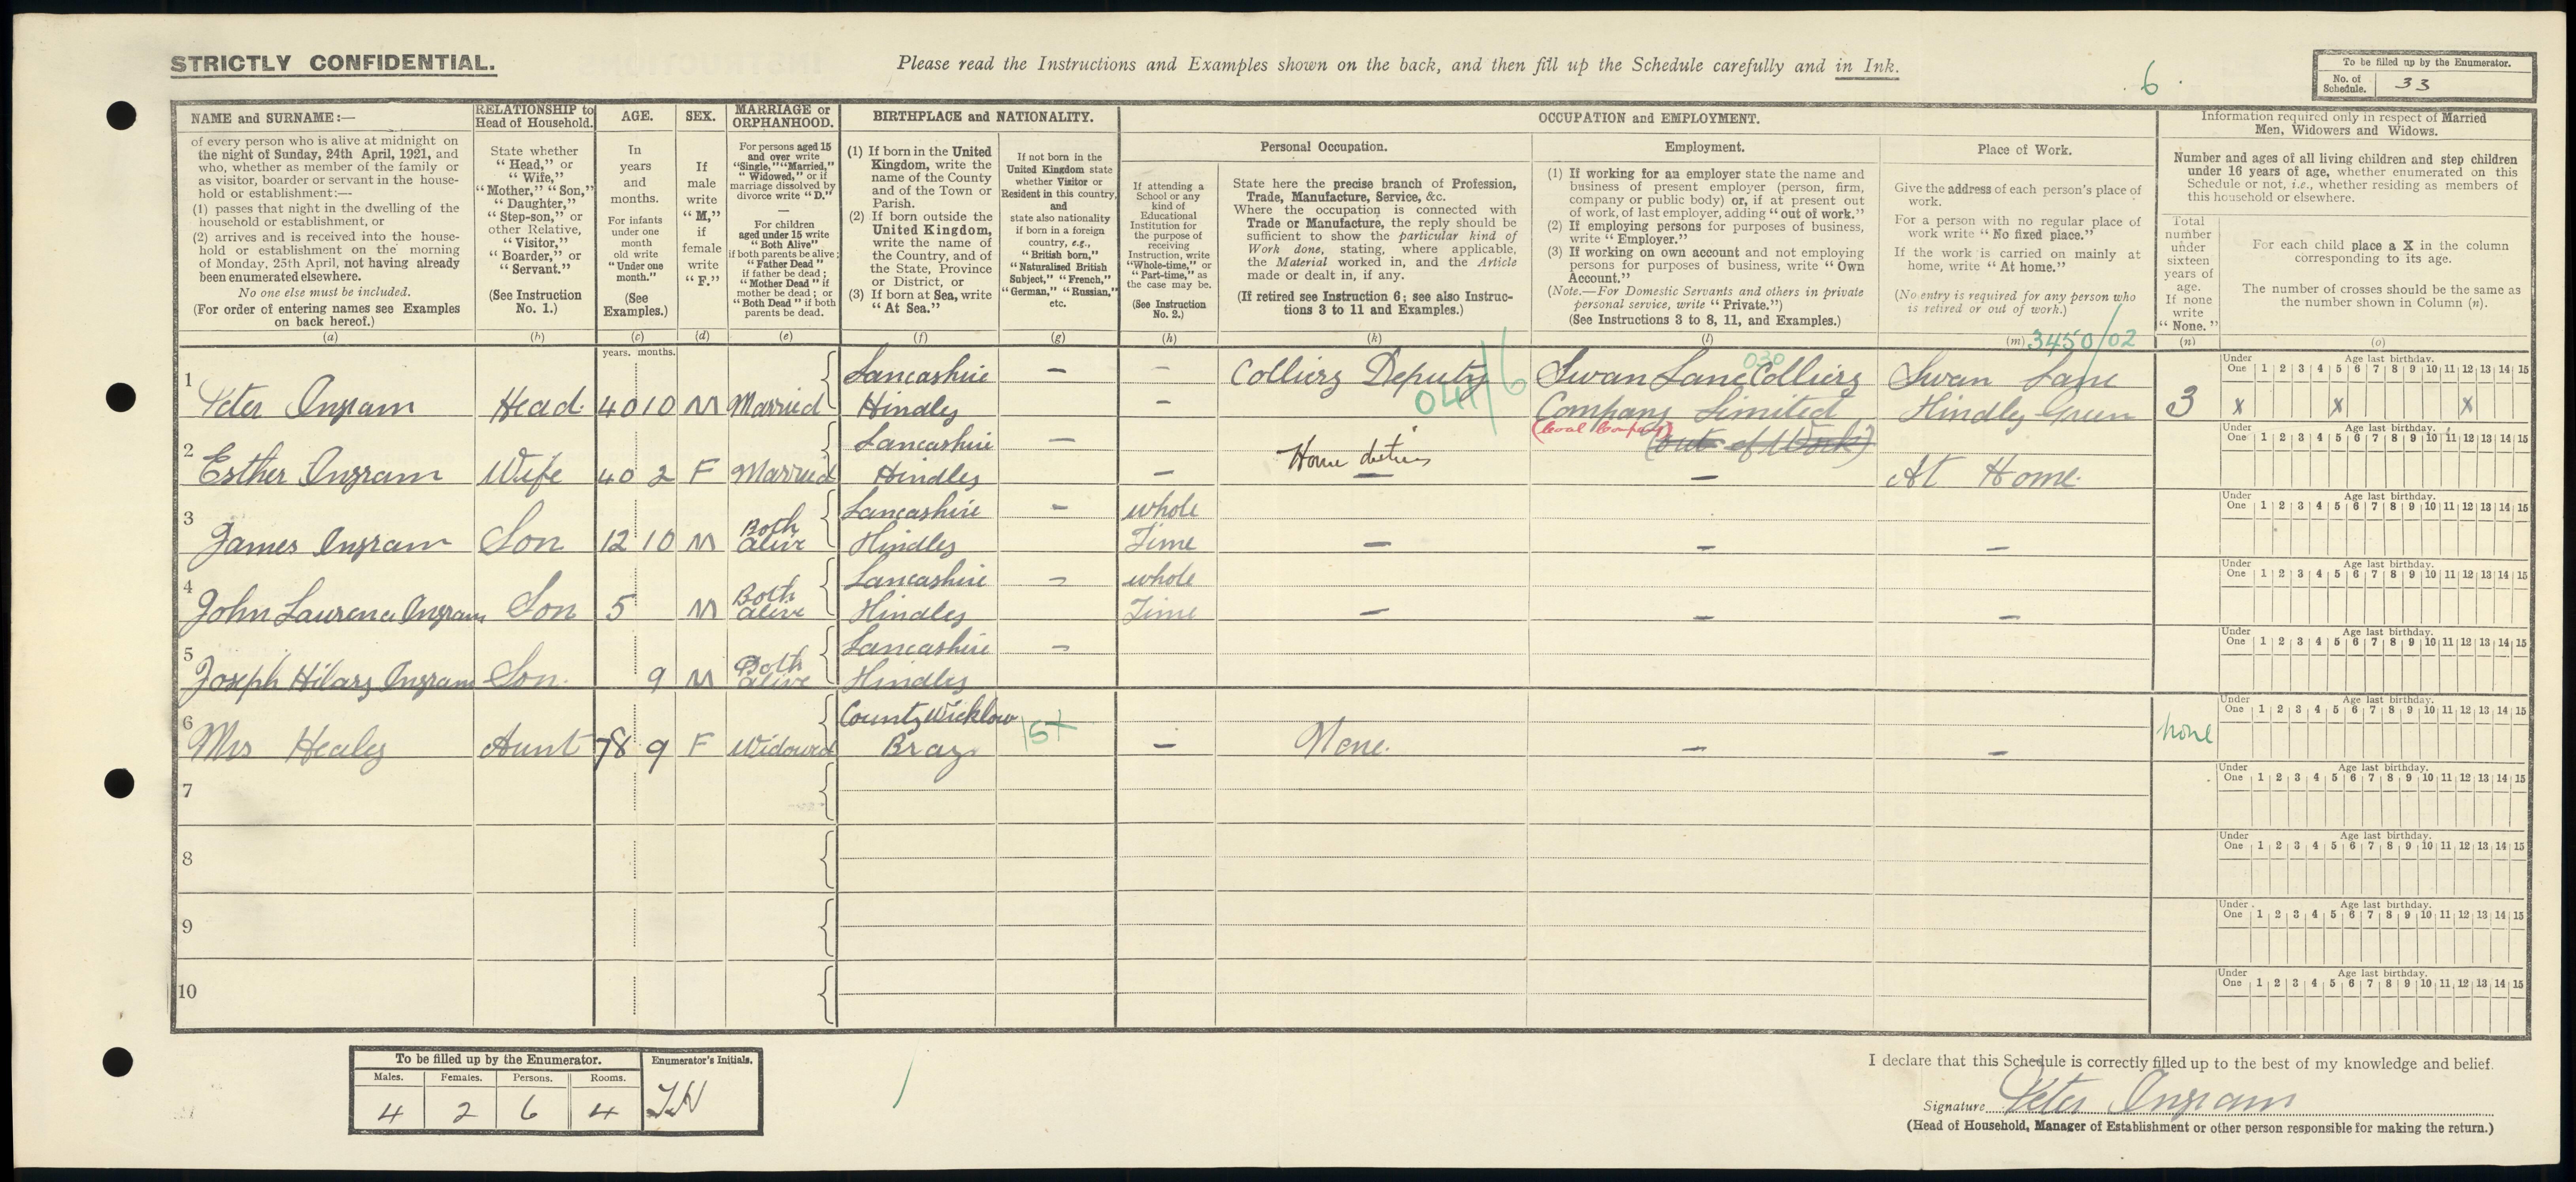 STRICTLY CONFIDENTIAL.
Please read the Instructions and Examples shown on the back, and then fill up the Schedule carefully and in Ink.
6
To be filled up by the Enumerator.
No. of Schedule. 33
NAME and SURNAME:—
of every person who is alive at midnight on
the night of Sunday, 24th April, 1921, and
who, whether as member of the family or
as visitor, boarder or servant in the house-
hold or establishment:—
(1) passes that night in the dwelling of the
household or establishment, or
(2) arrives and is received into the house-
hold or establishment on the morning
of Monday, 25th April, not having already
been enumerated elsewhere.
No one else must be included.
(For order of entering names see Examples
on back hereof.)
(a)
RELATIONSHIP to
Head of Household.
State whether
"Head," or
"Wife,"
"Mother," "Son,"
"Daughter,"
"Step-son," or
other Relative,
"Visitor,"
"Boarder," or
"Servant."
(See Instruction
No. 1.)
(b)
AGE.
In
years
and
months.
For infants
under one
month
old write
"Under one
month."
(See
Examples.)
(c)
SEX.
If
male
write
"M,"
if
female
write
"F."
(d)
MARRIAGE or
ORPHANHOOD.
For persons aged 15
and over write
"Single," "Married,"
"Widowed," or if
marriage dissolved by
divorce write "D."
—
For children
aged under 15 write
"Both Alive"
if both parents be alive;
"Father Dead"
if father be dead;
"Mother Dead" if
mother be dead; or
"Both Dead" if both
parents be dead.
(e)
BIRTHPLACE and NATIONALITY.
(1) If born in the United
Kingdom, write the
name of the County
and of the Town or
Parish.
(2) If born outside the
United Kingdom,
write the name of
the Country, and of
the State, Province
or District, or
(3) If born at Sea, write
"At Sea."
(f)
If not born in the
United Kingdom state
whether Visitor or
Resident in this country,
and
state also nationality
if born in a foreign
country, e.g.,
"British born,"
"Naturalised British
Subject," "French,"
"German," "Russian,"
etc.
(g)
OCCUPATION and EMPLOYMENT.
If attending a
School or any
kind of
Educational
Institution for
the purpose of
receiving
Instruction, write
"Whole-time," or
"Part-time," as
the case may be.
(See Instruction
No. 2.)
(h)
Personal Occupation.
State here the precise branch of Profession,
Trade, Manufacture, Service, &c.
Where the occupation is connected with
Trade or Manufacture, the reply should be
sufficient to show the particular kind of
Work done, stating, where applicable,
the Material worked in, and the Article
made or dealt in, if any.
(If retired see Instruction 6; see also Instruc-
tions 3 to 11 and Examples.)
(k)
Employment.
(1) If working for an employer state the name and
business of present employer (person, firm,
company or public body) or, if at present out
of work, of last employer, adding "out of work."
(2) If employing persons for purposes of business,
write "Employer."
(3) If working on own account and not employing
persons for purposes of business, write "Own
Account."
(Note.—For Domestic Servants and others in private
personal service, write "Private.")
(See Instructions 3 to 8, 11, and Examples.)
(l)
Place of Work.
Give the address of each person's place of
work.
For a person with no regular place of
work write "No fixed place."
If the work is carried on mainly at
home, write "At home."
(No entry is required for any person who
is retired or out of work.)
(m) 3450/02
Information required only in respect of Married
Men, Widowers and Widows.
Number and ages of all living children and step children
under 16 years of age, whether enumerated on this
Schedule or not, i.e., whether residing as members of
this household or elsewhere.
Total
number
under
sixteen
years of
age.
If none
write
"None."
(n)
For each child place a X in the column
corresponding to its age.
The number of crosses should be the same as
the number shown in Column (n).
(o)
years. months.
1 Peter Ingram Head 40 10 M Married Lancashire Hindley — — —
Colliery Deputy 041/6
Swan Lane Colliery 030
Company Limited
(local Company)
(out of Work)
Swan Lane
Hindley Green
3 x x x
Under One Age last birthday. 1 2 3 4 5 6 7 8 9 10 11 12 13 14 15
2 Esther Ingram Wife 40 2 F Married Lancashire Hindley — — Home duties — — At Home.
Under One Age last birthday. 1 2 3 4 5 6 7 8 9 10 11 12 13 14 15
3 James Ingram Son 12 10 M Both alive Lancashire Hindley — whole Time — — —
Under One Age last birthday. 1 2 3 4 5 6 7 8 9 10 11 12 13 14 15
4 John Laurence Ingram Son 5 M Both alive Lancashire Hindley — whole Time — — —
Under One Age last birthday. 1 2 3 4 5 6 7 8 9 10 11 12 13 14 15
5 Joseph Hilary Ingram Son. 9 M Both alive Lancashire Hindley —
Under One Age last birthday. 1 2 3 4 5 6 7 8 9 10 11 12 13 14 15
6 Mrs Healey Aunt 78 9 F Widowed County Wicklow Bray 15+ — None. — — none
Under One Age last birthday. 1 2 3 4 5 6 7 8 9 10 11 12 13 14 15
7
Under One Age last birthday. 1 2 3 4 5 6 7 8 9 10 11 12 13 14 15
8
Under One Age last birthday. 1 2 3 4 5 6 7 8 9 10 11 12 13 14 15
9
Under One Age last birthday. 1 2 3 4 5 6 7 8 9 10 11 12 13 14 15
10
Under One Age last birthday. 1 2 3 4 5 6 7 8 9 10 11 12 13 14 15
To be filled up by the Enumerator.
Males. Females. Persons. Rooms.
4 2 6 4
Enumerator's Initials.
I declare that this Schedule is correctly filled up to the best of my knowledge and belief.
Signature Peter Ingram
(Head of Household, Manager of Establishment or other person responsible for making the return.)